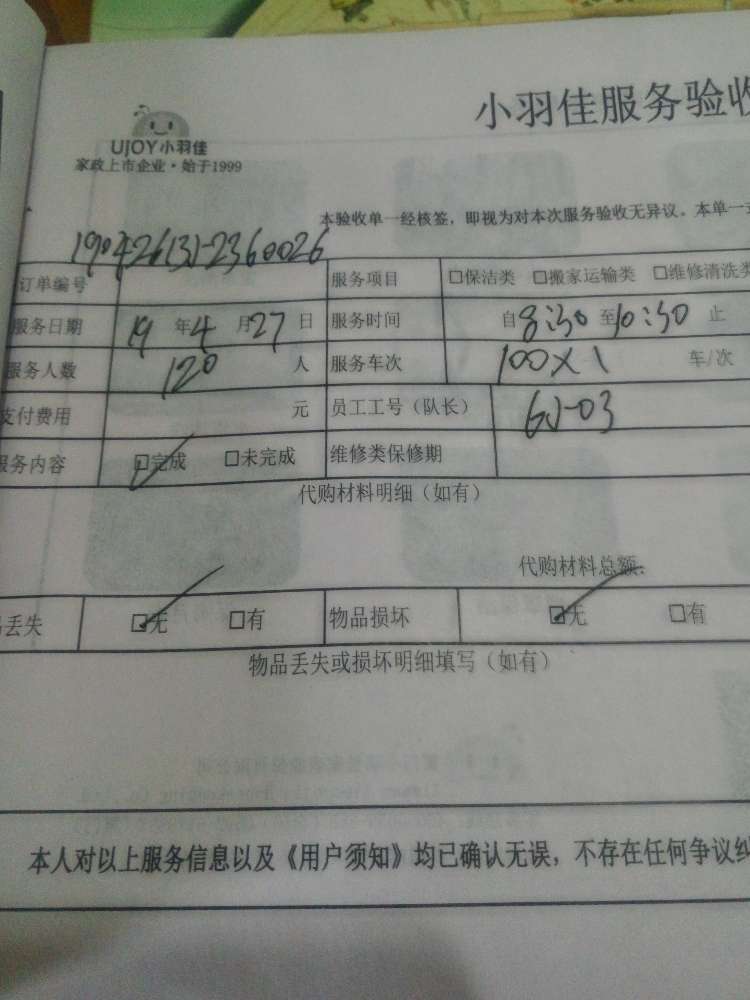 小羽佳服务验收
UJOY小羽佳
家政上市企业·始于1999
本验收单一经核签，即视为对本次服务验收无异议。本单一式
订单编号 190426131-2360026 服务项目 □保洁类 □搬家运输类 □维修清洗类
服务日期 19年4月27日 服务时间 自8:30至10:30止
服务人数 120人 服务车次 100X1 车/次
支付费用 元 员工工号（队长） GJ-03
服务内容 ☑完成 □未完成 维修类保修期
代购材料明细（如有）
代购材料总额：
品丢失 ☑无 □有 物品损坏 ☑无 □有
物品丢失或损坏明细填写（如有）
本人对以上服务信息以及《用户须知》均已确认无误，不存在任何争议纠